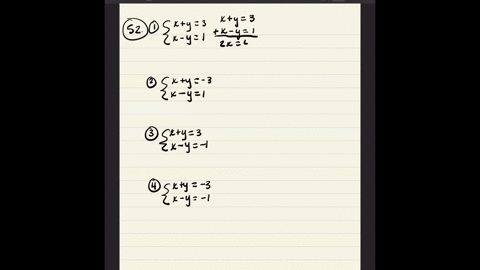 52. ① { x+y=3
x-y=1
x+y=3
+x-y=1
2x=6
② { x+y=-3
x-y=1
③ { x+y=3
x-y=-1
④ { x+y=-3
x-y=-1